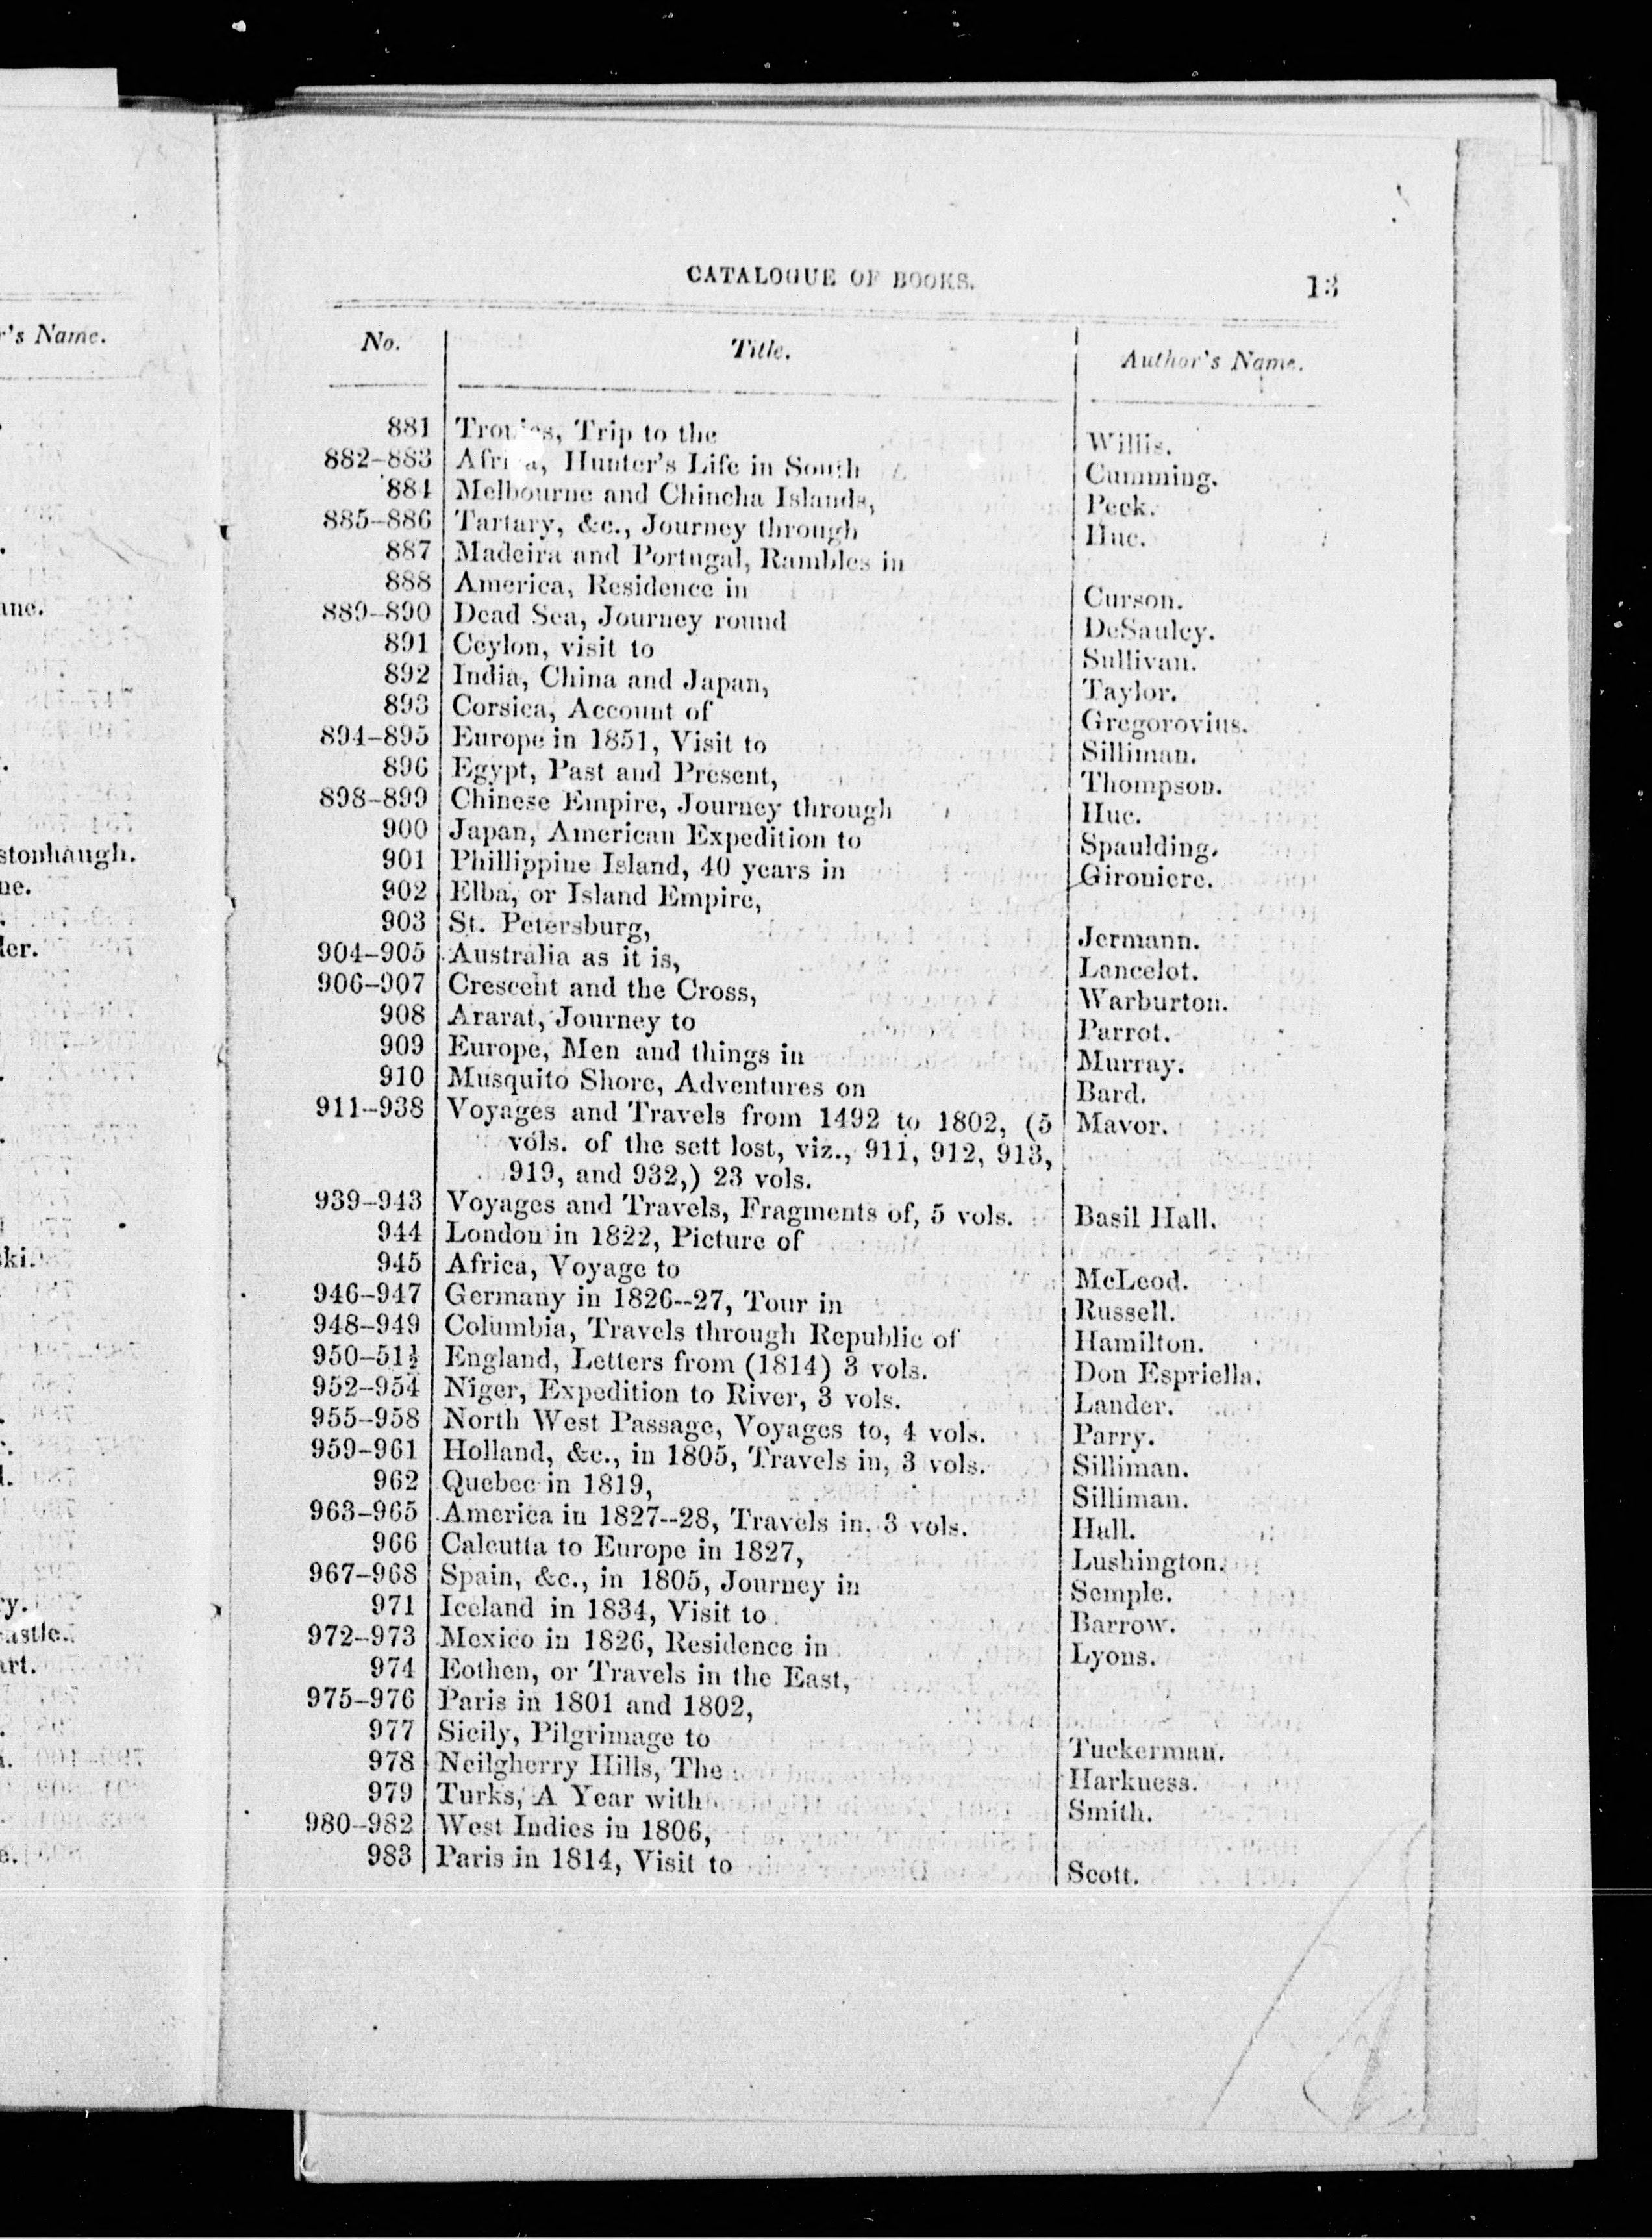 r's Name.
ane.
stonhaugh.
ne.
ler.
ki.
ry.
astle.
art.
CATALOGUE OF BOOKS. 13
No. Title. Author's Name.
881 Tropics, Trip to the Willis.
882-883 Africa, Hunter's Life in South Cumming.
884 Melbourne and Chincha Islands, Peck.
885-886 Tartary, &c., Journey through Huc.
887 Madeira and Portugal, Rambles in
888 America, Residence in Curson.
889-890 Dead Sea, Journey round DeSauley.
891 Ceylon, visit to Sullivan.
892 India, China and Japan, Taylor.
893 Corsica, Account of Gregorovius.
894-895 Europe in 1851, Visit to Silliman.
896 Egypt, Past and Present, Thompson.
898-899 Chinese Empire, Journey through Huc.
900 Japan, American Expedition to Spaulding.
901 Phillippine Island, 40 years in Gironiere.
902 Elba, or Island Empire,
903 St. Petersburg, Jermann.
904-905 Australia as it is, Lancelot.
906-907 Crescent and the Cross, Warburton.
908 Ararat, Journey to Parrot.
909 Europe, Men and things in Murray.
910 Musquito Shore, Adventures on Bard.
911-938 Voyages and Travels from 1492 to 1802, (5 Mavor.
vols. of the sett lost, viz., 911, 912, 913,
919, and 932,) 23 vols.
939-943 Voyages and Travels, Fragments of, 5 vols. Basil Hall.
944 London in 1822, Picture of
945 Africa, Voyage to McLeod.
946-947 Germany in 1826--27, Tour in Russell.
948-949 Columbia, Travels through Republic of Hamilton.
950-51½ England, Letters from (1814) 3 vols. Don Espriella.
952-954 Niger, Expedition to River, 3 vols. Lander.
955-958 North West Passage, Voyages to, 4 vols. Parry.
959-961 Holland, &c., in 1805, Travels in, 3 vols. Silliman.
962 Quebec in 1819, Silliman.
963-965 America in 1827--28, Travels in, 3 vols. Hall.
966 Calcutta to Europe in 1827, Lushington.
967-968 Spain, &c., in 1805, Journey in Semple.
971 Iceland in 1834, Visit to Barrow.
972-973 Mexico in 1826, Residence in Lyons.
974 Eothen, or Travels in the East,
975-976 Paris in 1801 and 1802,
977 Sicily, Pilgrimage to Tuckerman.
978 Neilgherry Hills, The Harkness.
979 Turks, A Year with Smith.
980-982 West Indies in 1806,
983 Paris in 1814, Visit to Scott.